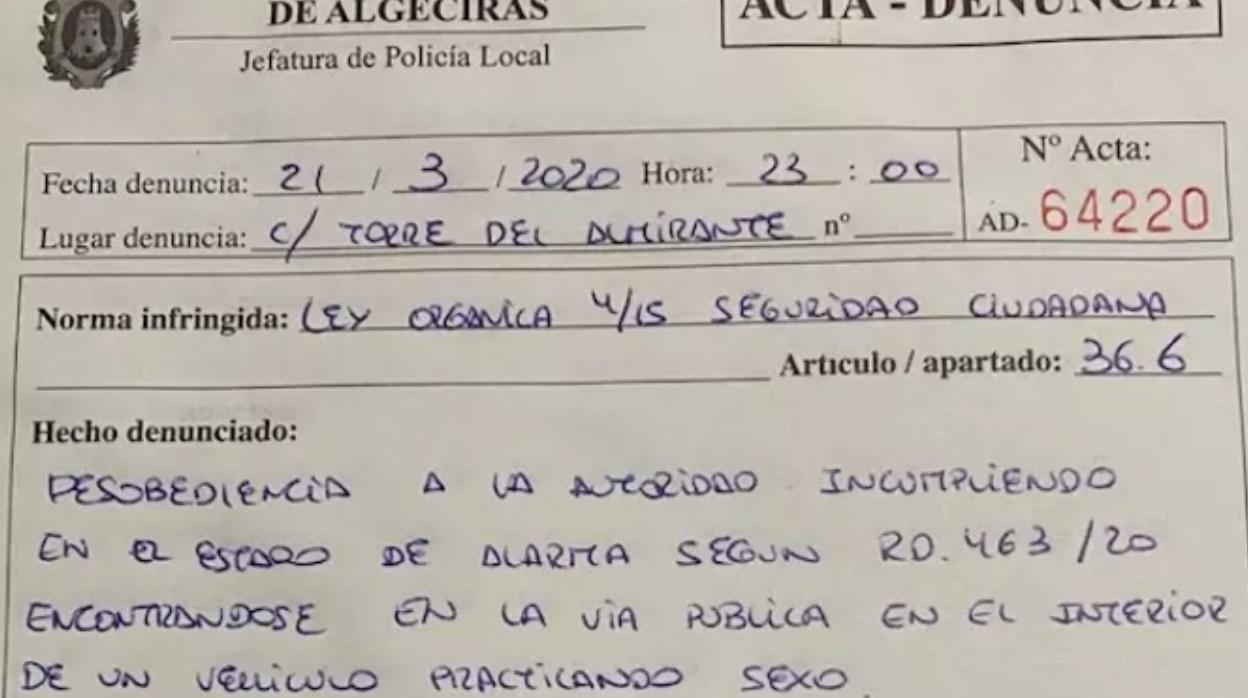 DE ALGECIRAS
ACTA - DENUNCIA
Jefatura de Policía Local
Fecha denuncia: 21 / 3 / 2020 Hora: 23 : 00
Nº Acta:
Lugar denuncia: C/ TORRE DEL ALMIRANTE nº
AD- 64220
Norma infringida: LEY ORGANICA 4/15 SEGURIDAD CIUDADANA
Artículo / apartado: 36.6
Hecho denunciado:
DESOBEDIENCIA A LA AUTORIDAD INCUMPLIENDO
EN EL ESTADO DE ALARMA SEGUN RD. 463/20
ENCONTRANDOSE EN LA VIA PUBLICA EN EL INTERIOR
DE UN VEHICULO PRACTICANDO SEXO.